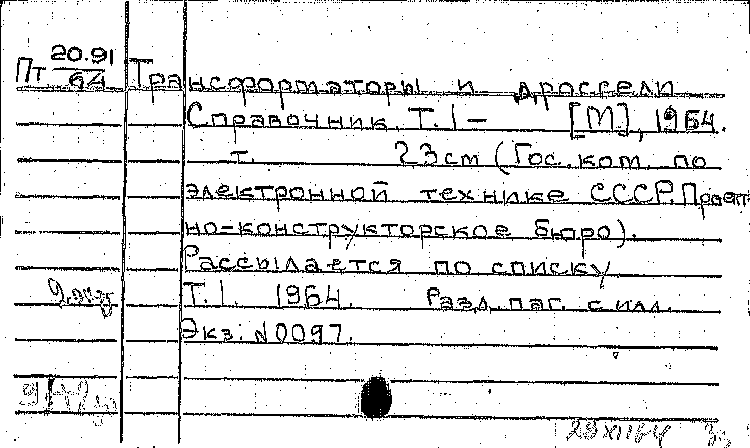 Пт 20.91
64
Трансформаторы и дроссели
Справочник. Т. 1 – [М], 1964.
т. 23 cm (Гос. ком. по
электронной технике СССР. Проект
но-конструкторское бюро).
Рассылается по списку
Т. 1. 1964. Разд. паг. с илл.
Экз: N0097.